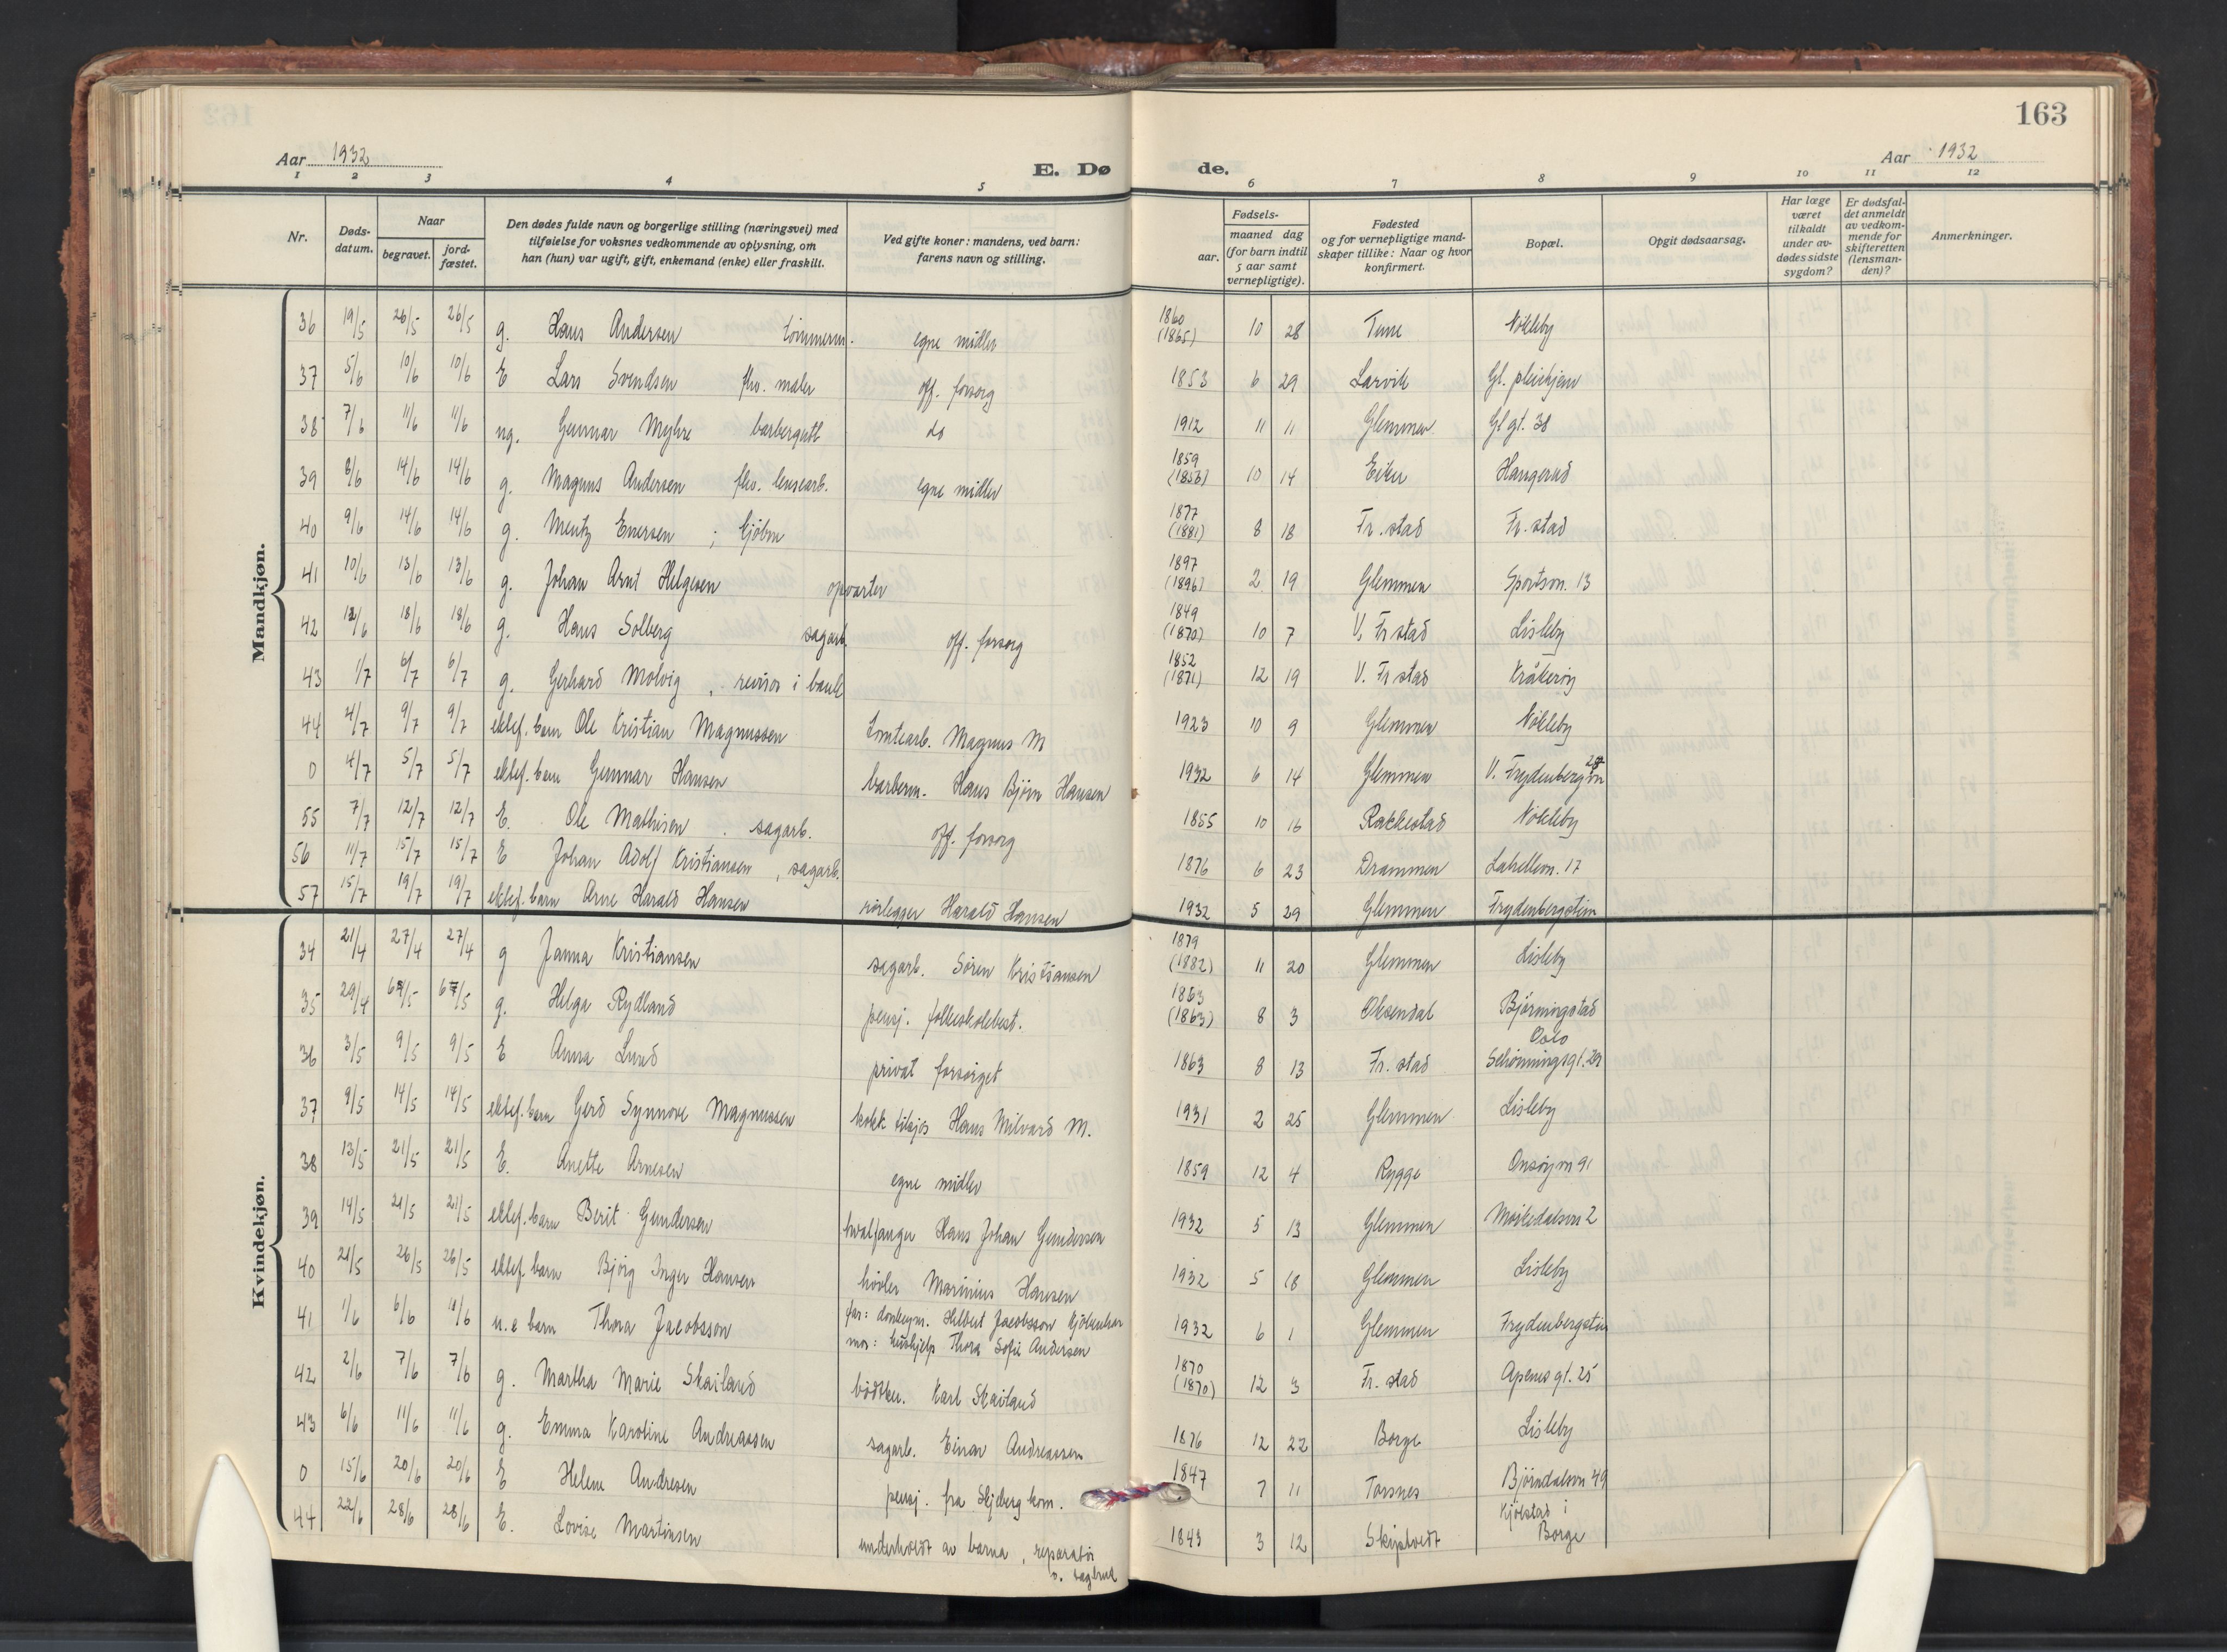 163
Aar 1932
E. Dø de.
Aar 1932
1 2 3 4 5 6 7 8 9 10 11 12
Nr.
Døds-datum.
Naar
begravet.
jord-fæstet.
Den dødes fulde navn og borgerlige stilling (næringsvei) med
tilføielse for voksnes vedkommende av oplysning, om
han (hun) var ugift, gift, enkemand (enke) eller fraskilt.
Ved gifte koner: mandens, ved barn:
farens navn og stilling.
Fødsels-
aar.
maaned dag
(for barn indtil
5 aar samt
vernepligtige).
Fødested
og for vernepligtige mand-
skaper tillike: Naar og hvor
konfirmert.
Bopæl.
Opgit dødsaarsag.
Har læge
været
tilkaldt
under av-
dødes sidste
sygdom?
Er dødsfal-
det anmeldt
av vedkom-
mende for
skifteretten
(lensman-
den)?
Anmerkninger.
Mandkjøn.
36 19/5 26/5 26/5 g. Hans Andersen tømmerm. egne midler 1860 (1865) 10 28 Tune Nökleby
37 5/6 10/6 10/6 E Lars Svendsen fhv. maler off. forsorg 1853 6 29 Larvik Gl. pleiehjem
38 7/6 11/6 11/6 ug. Gunnar Myhre barbergutt do 1912 11 11 Glemmen Gl gt. 38
39 8/6 14/6 14/6 g. Magnus Andersen fhv. lensearb. egne midler 1859 (1853) 10 14 Eiker Haugerud
40 9/6 14/6 14/6 g. Mentz Enersen ; kjöbm 1877 (1881) 8 18 Fr. stad Fr. stad
41 10/6 13/6 13/6 g. Johan Arnt Helgesen opvarter 1897 (1896) 2 19 Glemmen Sportsvn. 13
42 12/6 18/6 18/6 g. Hans Solberg sagarb. off. forsorg 1849 (1870) 10 7 V. Fr stad Lisleby
43 1/7 6/7 6/7 g. Gerhard Molvig , revisor i bank 1852 (1871) 12 19 V. Fr stad Kråkeröy
44 4/7 9/7 9/7 ektef. barn Ole Kristian Magnussen tomtearb. Magnus M 1923 10 9 Glemmen Nökleby
0 4/7 5/7 5/7 ektef. barn Gunnar Hansen barberm. Hans Björn Hansen 1932 6 14 Glemmen V. Frydenberg
55 7/7 12/7 12/7 E. Ole Mathisen . sagarb. off. forsorg 1855 10 16 Rakkestad Nökleby
56 11/7 15/7 15/7 E Johan Adolf Kristiansen , sagarb. 1876 6 23 Drammen Lahellevn. 17
57 15/7 19/7 19/7 ektef. barn Arne Harald Hansen rörlegger Harald Hansen 1932 5 29 Glemmen Frydenbergstien
Kvindekjøn.
34 21/4 27/4 27/4 g Janna Kristiansen sagarb. Sören Kristiansen 1879 (1882) 11 20 Glemmen Lisleby
35 29/4 g. Helga Rydland pensj. folkeskolebest. 1863 (1863) 8 3 Oksendal Bjørningstad
36 3/5 9/5 9/5 E Anna Lund privat forsörget 1863 8 13 Fr. stad Oslo Schönningsgt. 29
37 9/5 14/5 14/5 ektef. barn Gerd Synnove Magnussen kokk tilsjös Hans Milvard M. 1931 2 25 Glemmen Lisleby
38 13/5 21/5 21/5 E. Anette Arnesen egne midler 1859 12 4 Rygge Onsöyvn 91
39 14/5 21/5 21/5 ektef. barn Berit Gundersen hvalfanger Hans Johan Gundersen 1932 5 13 Glemmen Mörkedalsvn 2
40 21/5 26/5 26/5 ektef. barn Björg Inger Hansen hövler Marinius Hansen 1932 5 18 Glemmen Lisleby
41 1/6 6/6 u. e barn Thora Jacobsson far: donkeym. Helbert Jacobsson Kjöbenhavn 1932 6 1 Glemmen Frydenbergstien
mor: hushjelp Thora Sofie Andersen
42 2/6 7/6 7/6 g. Martha Marie Skailand bödtker. Karl Skailand 1870 (1870) 12 3 Fr. stad Apenesgt. 25
43 6/6 11/6 11/6 g. Emma Karoline Andreassen sagarb. Einar Andreassen 1876 12 22 Borge Lisleby
0 15/6 20/6 20/6 E Helene Andresen pensj. fra Skjeberg kom. 1847 7 11 Torsnes Bjørndalsvn 49
44 22/6 28/6 28/6 E. Lovise Martinsen underholdt av barna , reparatör 1843 3 12 Skiptvedt Kjölstad i Borge
v. sagbruk